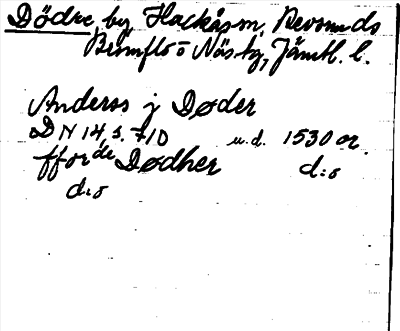 Dödre, by, Hackås sn, Revsunds
Brunflo o Näs tg, Jämtl. l.
Anderss j Døder
DN 14, s. 710 u.d. 1530 or.
ffor de Dødher d:o
d:o